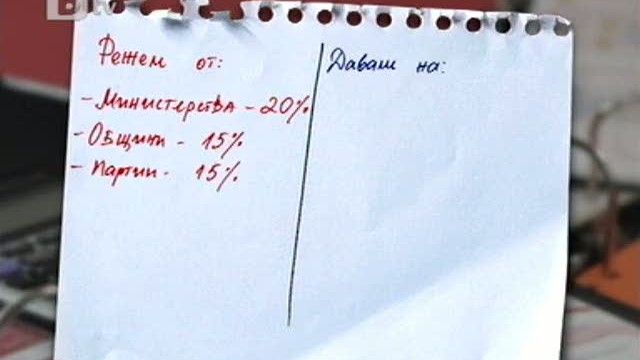 bTV
Режем от:
- Министерства - 20%
- Общини - 15%
- Партии - 15%
Даваме на: